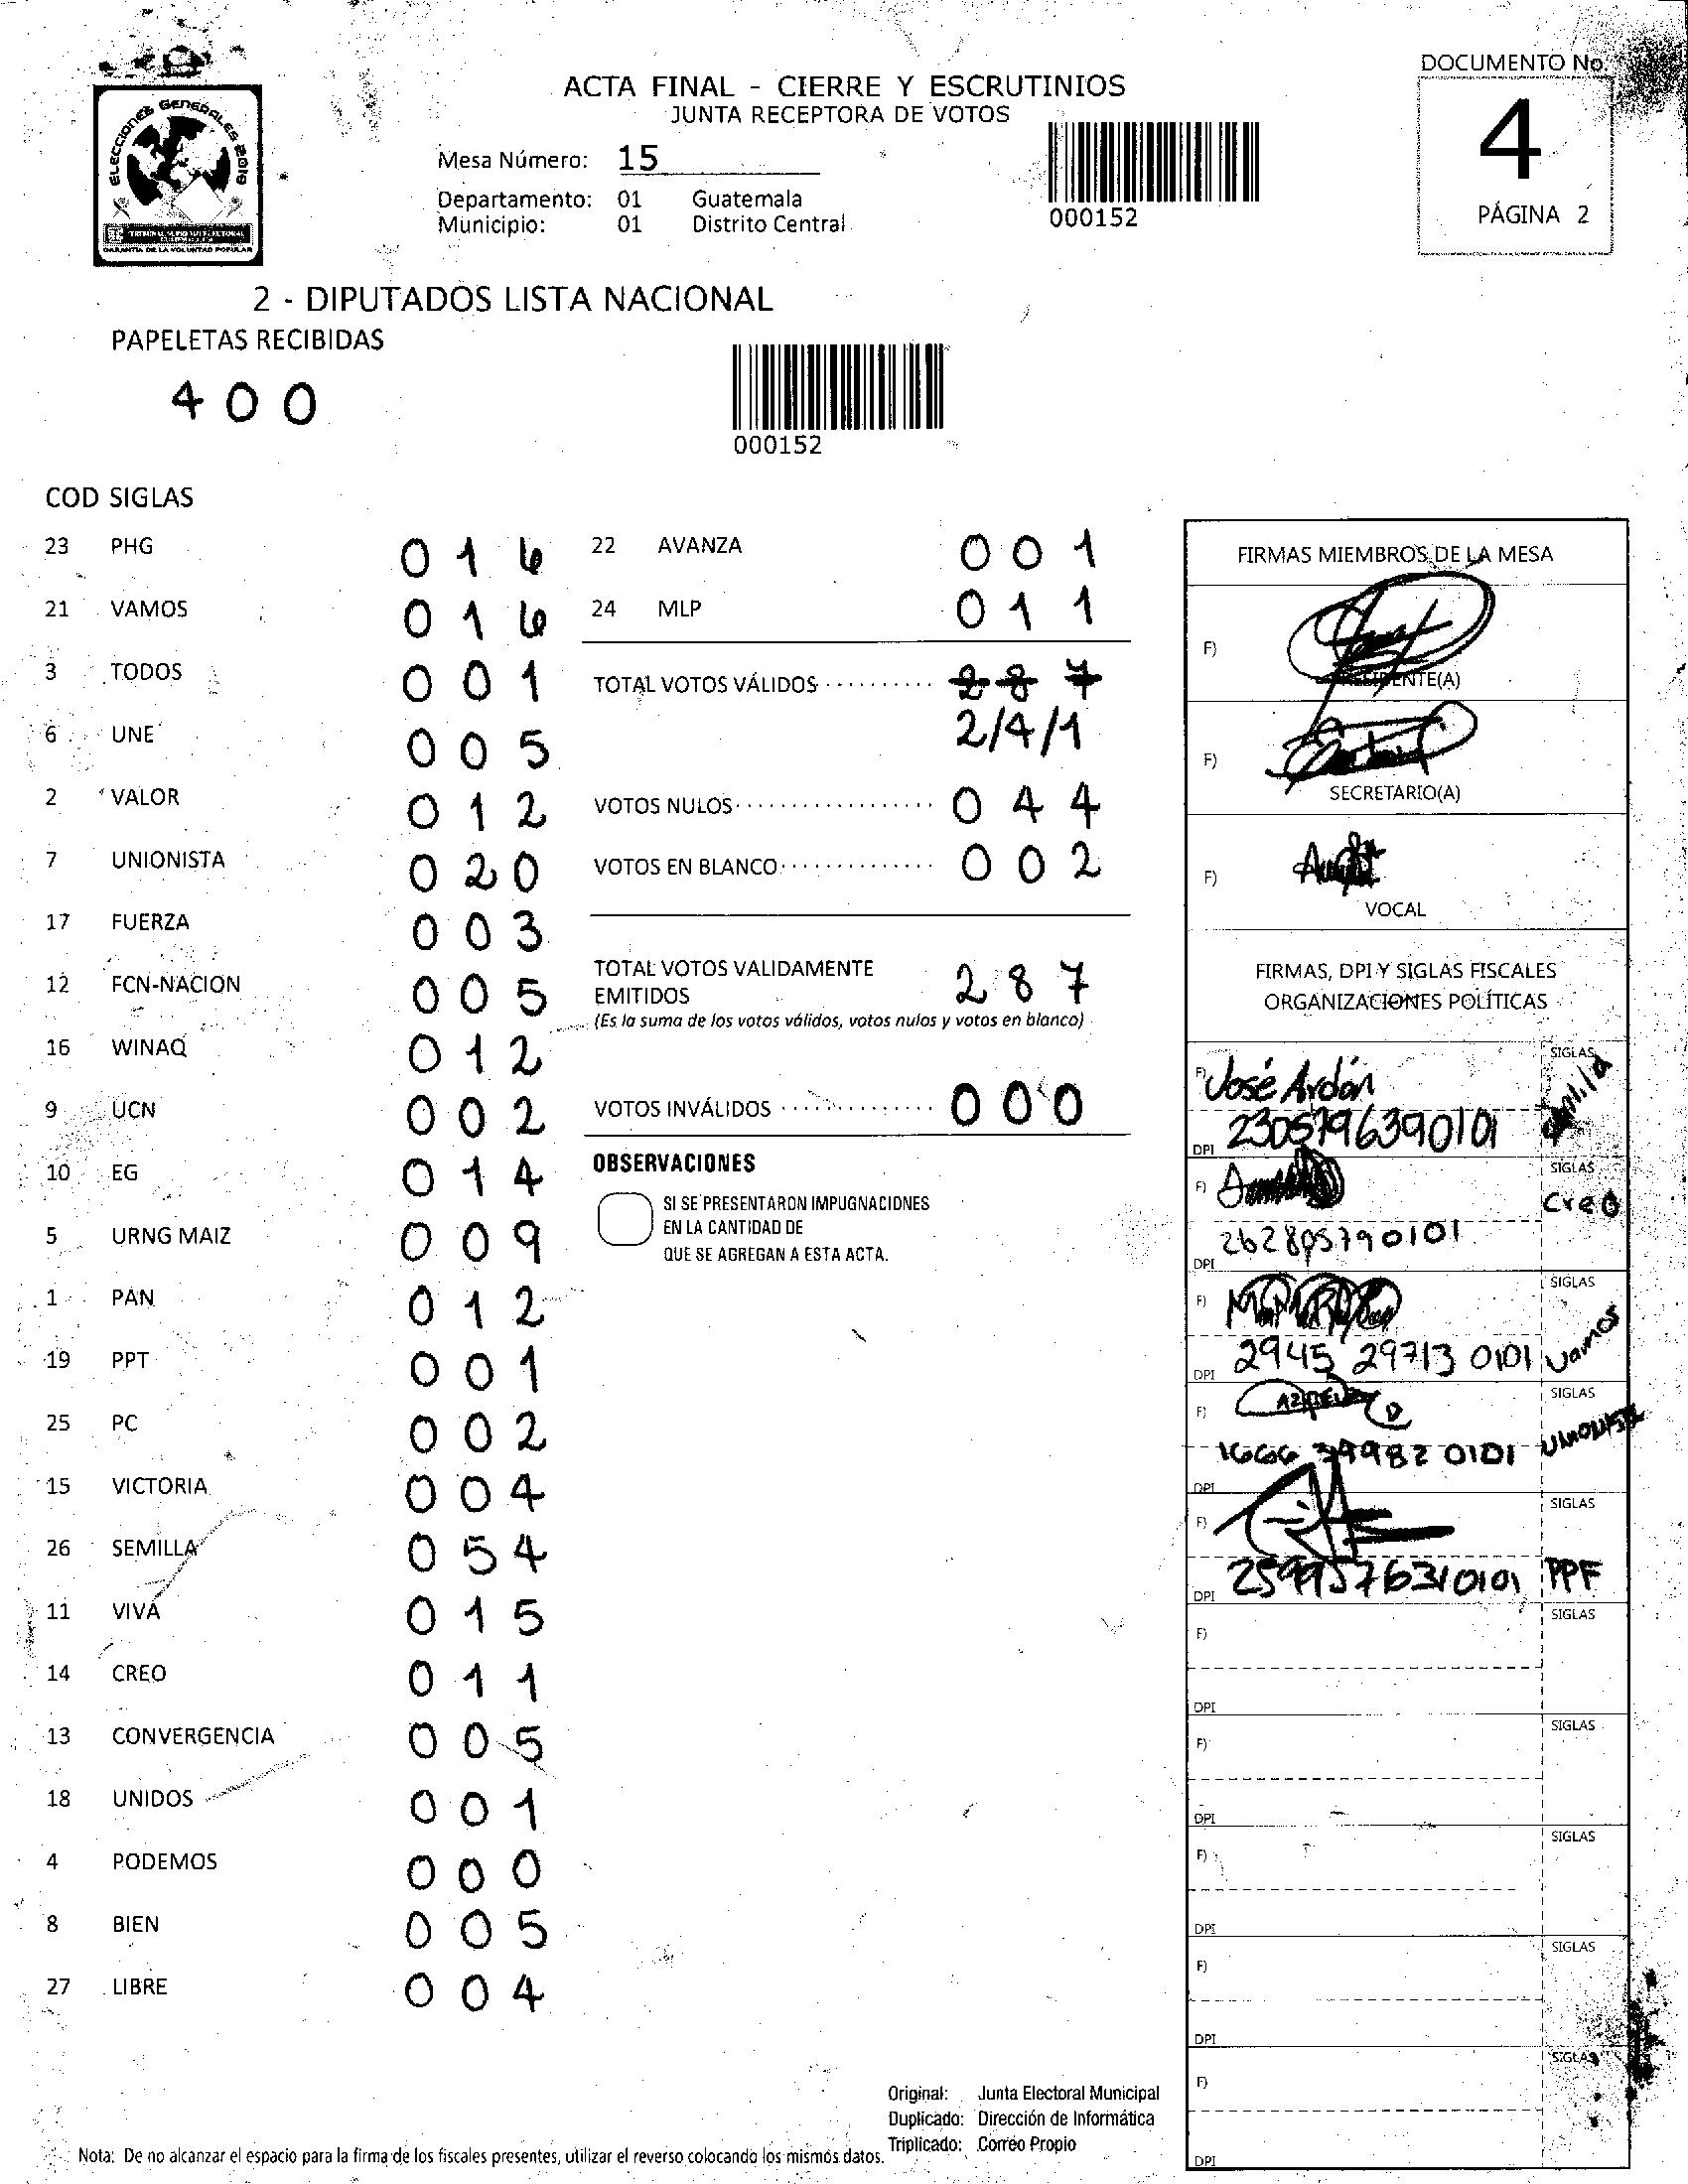 DOCUMENTO No.
4
PÁGINA 2
ELECCIONES GENERALES 2019
TRIBUNAL SUPREMO ELECTORAL
GARANTÍA DE LA VOLUNTAD POPULAR
ACTA FINAL - CIERRE Y ESCRUTINIOS
JUNTA RECEPTORA DE VOTOS
Mesa Número: 15
Departamento: 01 Guatemala
Municipio: 01 Distrito Central
000152
2 - DIPUTADOS LISTA NACIONAL
PAPELETAS RECIBIDAS
4 0 0
000152
COD SIGLAS
23 PHG 0 1 6
21 VAMOS 0 1 6
3 TODOS 0 0 1
6 UNE 0 0 5
2 VALOR 0 1 2
7 UNIONISTA 0 2 0
17 FUERZA 0 0 3
12 FCN-NACION 0 0 5
16 WINAQ 0 1 2
9 UCN 0 0 2
10 EG 0 1 4
5 URNG MAIZ 0 0 9
1 PAN 0 1 2
19 PPT 0 0 1
25 PC 0 0 2
15 VICTORIA 0 0 4
26 SEMILLA 0 5 4
11 VIVA 0 1 5
14 CREO 0 1 1
13 CONVERGENCIA 0 0 5
18 UNIDOS 0 0 1
4 PODEMOS 0 0 0
8 BIEN 0 0 5
27 LIBRE 0 0 4
22 AVANZA 0 0 1
24 MLP 0 1 1
TOTAL VOTOS VÁLIDOS 2 8 7
2/4/1
VOTOS NULOS 0 4 4
VOTOS EN BLANCO 0 0 2
TOTAL VOTOS VALIDAMENTE
EMITIDOS 2 8 7
(Es la suma de los votos válidos, votos nulos y votos en blanco)
VOTOS INVÁLIDOS 0 0 0
OBSERVACIONES
SI SE PRESENTARON IMPUGNACIONES
EN LA CANTIDAD DE
QUE SE AGREGAN A ESTA ACTA.
FIRMAS MIEMBROS DE LA MESA
F)
PRESIDENTE(A)
F)
SECRETARIO(A)
F)
VOCAL
FIRMAS, DPI Y SIGLAS FISCALES
ORGANIZACIONES POLÍTICAS
F) José Ardón SIGLAS
DPI 2305796390101
F) SIGLAS Creo
DPI 262805790101
F) SIGLAS Vamos
DPI 2945 29713 0101
F) SIGLAS UNIONISTA
DPI 1666 39982 0101
F) SIGLAS PPF
DPI 2599576310101
F) SIGLAS
DPI
F) SIGLAS
DPI
F) SIGLAS
DPI
F) SIGLAS
DPI
F) SIGLAS
DPI
Original: Junta Electoral Municipal
Duplicado: Dirección de Informática
Triplicado: Correo Propio
Nota: De no alcanzar el espacio para la firma de los fiscales presentes, utilizar el reverso colocando los mismos datos.